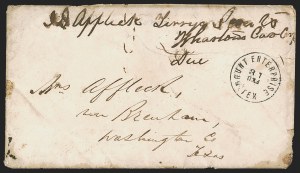 J. D. Affleck Terrys
Wharton's Cav
Due
MOUNT ENTERPRISE
TEX
Mrs Affleck,
near Brenham,
Washington Co
Texas